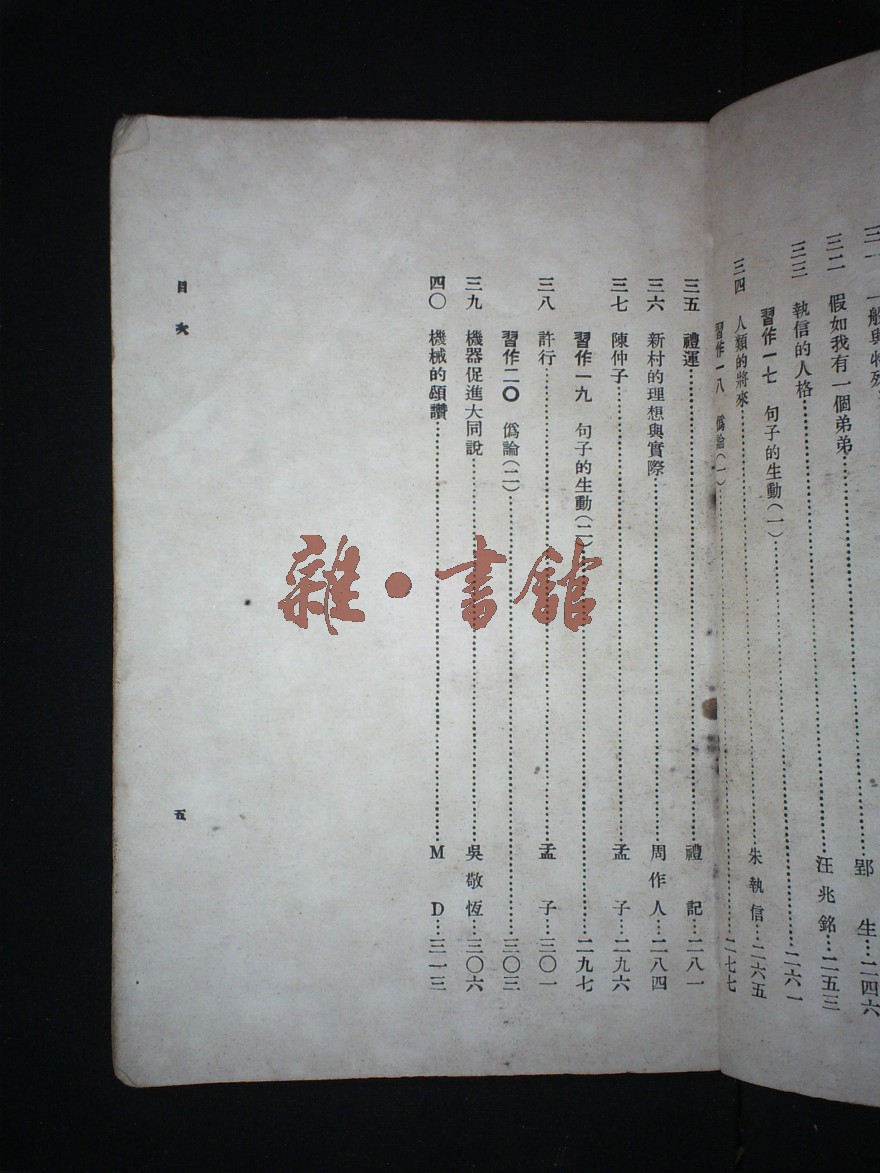 三一 一般與特殊
三二 假如我有一個弟弟……郢生…二四六
三三 執信的人格……汪兆銘…二五三
習作一七 句子的生動(一)……二六一
三四 人類的將來……朱執信…二六五
習作一八 僞論(一)……二七七
三五 禮運……禮記…二八一
三六 新村的理想與實際……周作人…二八四
三七 陳仲子……孟子…二九六
習作一九 句子的生動(二)……二九七
三八 許行……孟子…三〇一
習作二〇 僞論(二)……三〇三
三九 機器促進大同說……吳敬恆…三〇六
四〇 機械的頌讚……M D…三一三
目次
五
雜·書館